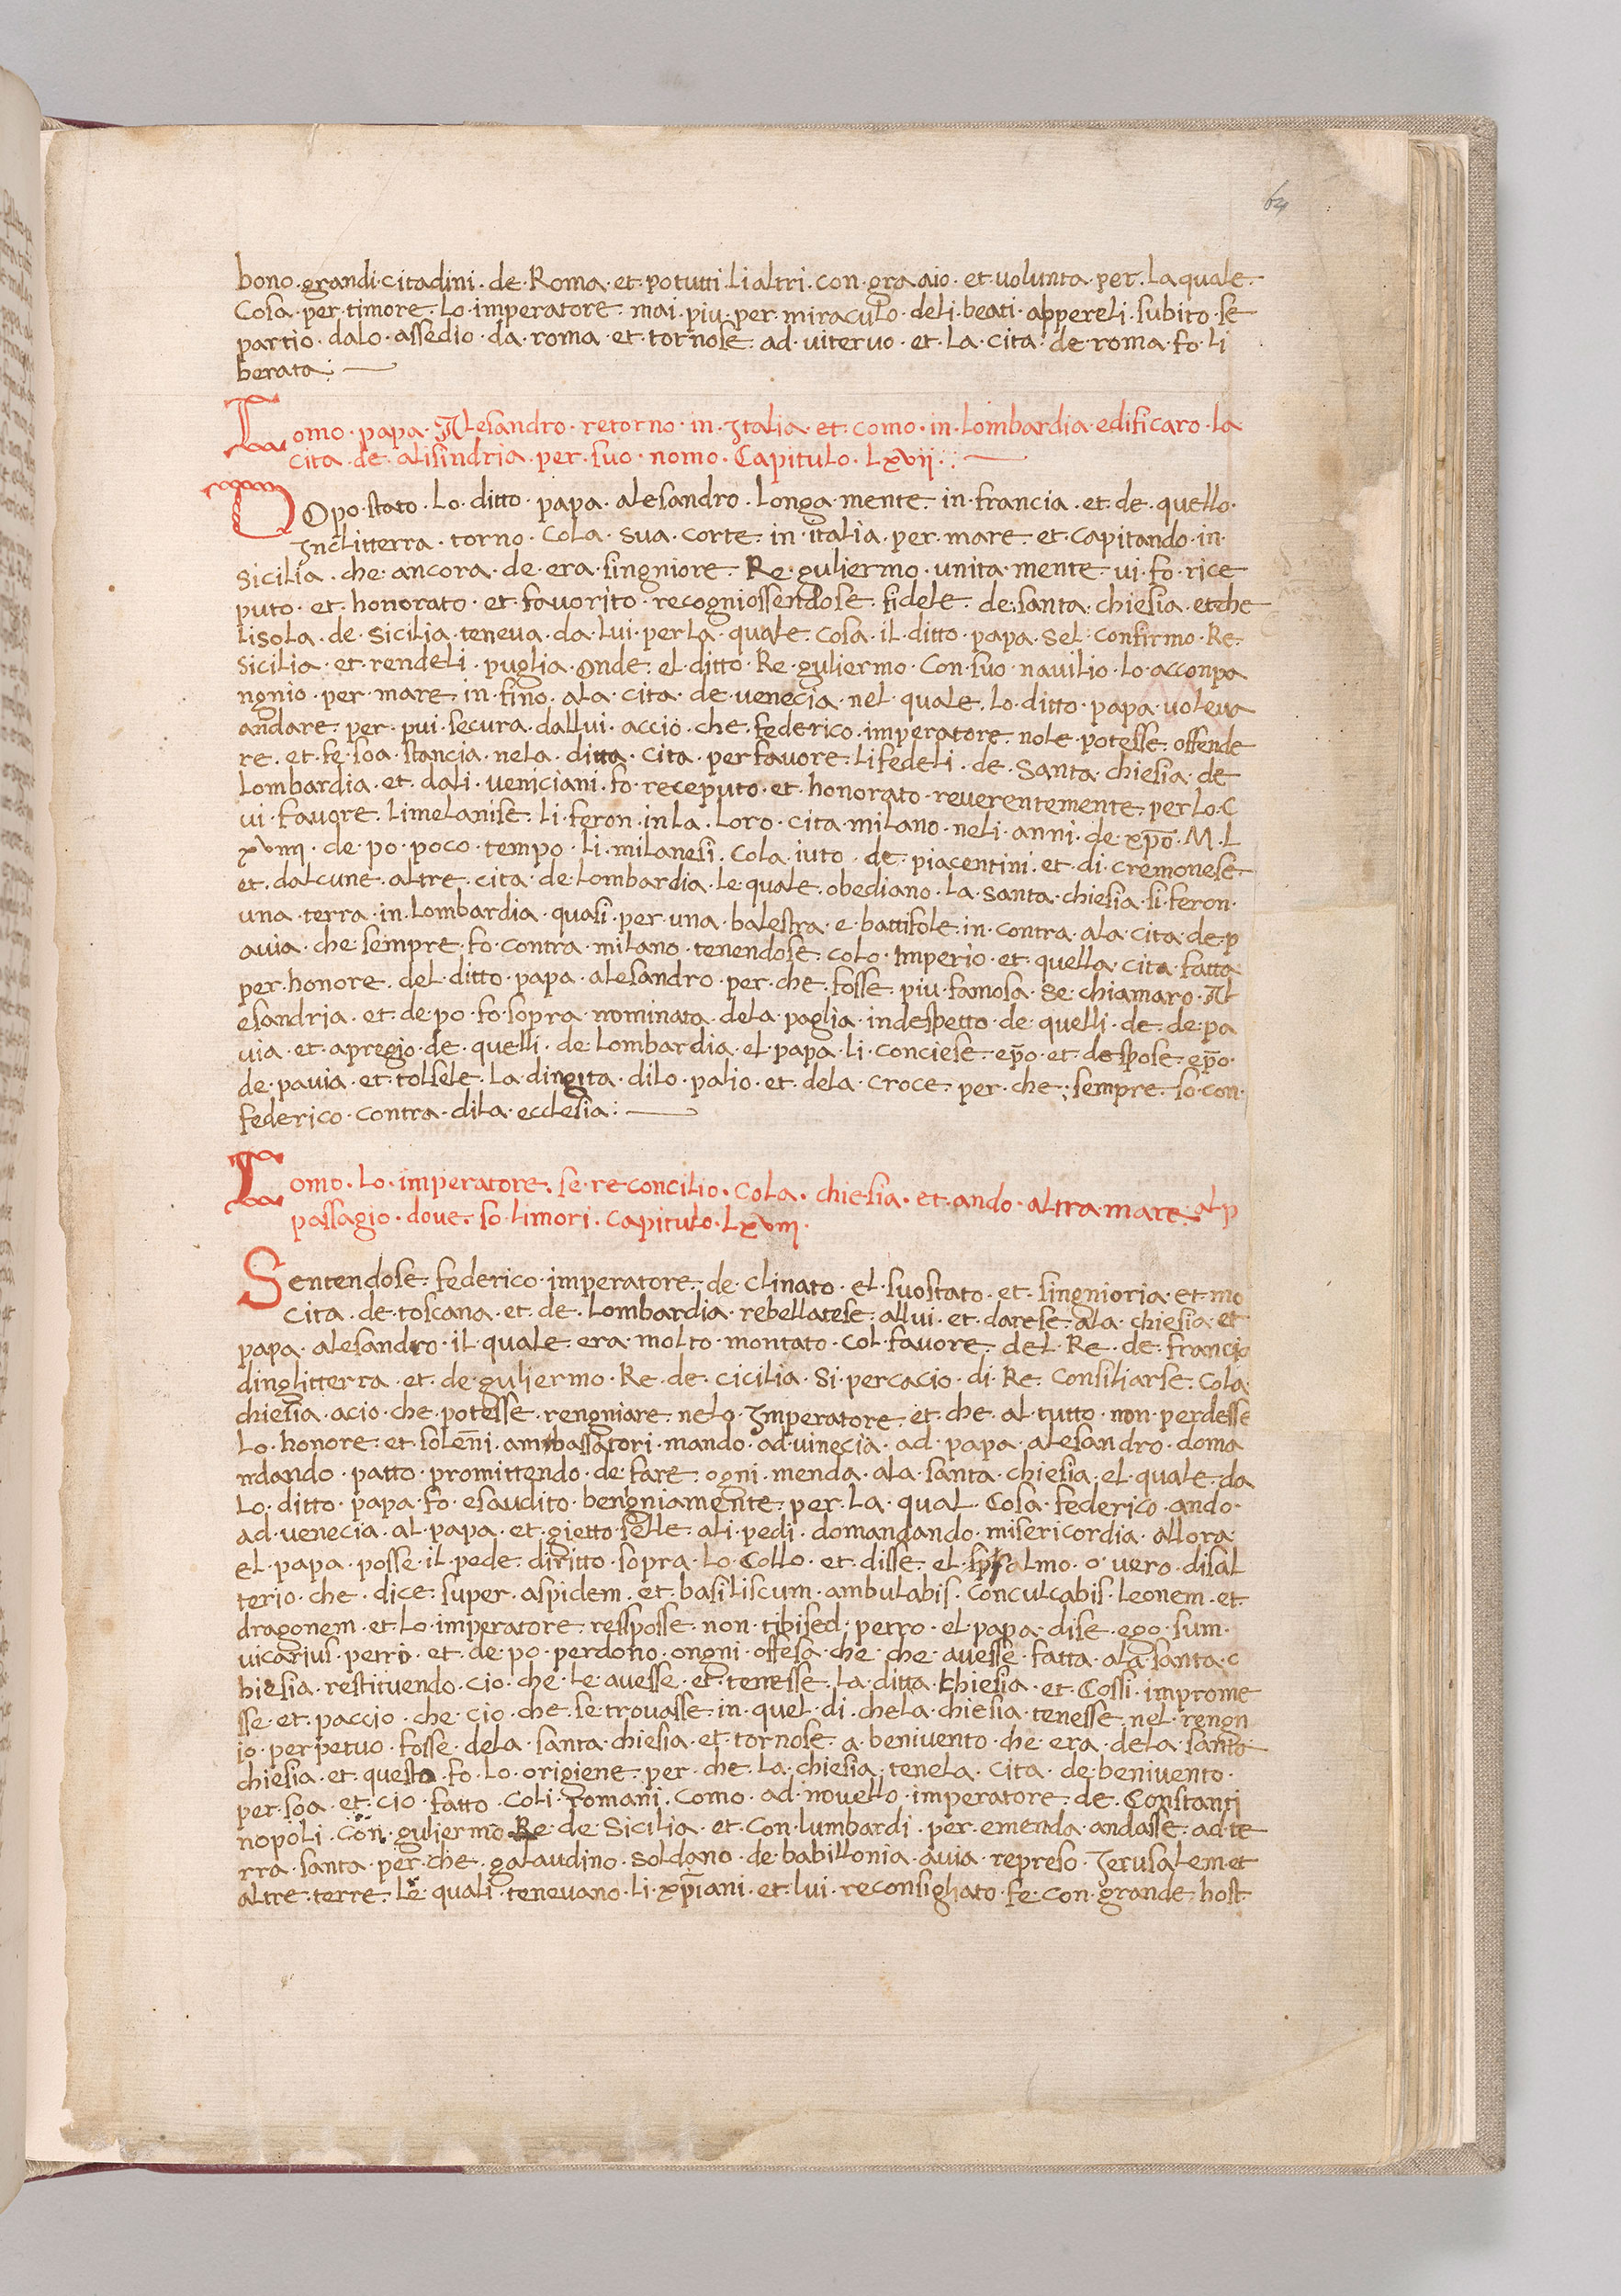 64
bono · grandi · citadini · de · Roma · et · po tutti · li altri · con · gra aio · et · volunta · per · la quale ·
Cosa · per · timore · lo · imperatore · mai · piu · per · miraculo · deli · beati · appereli · subito · se
partio · dalo · assedio · da · roma · et · tornose · ad · vitervo · et · la · cita · de · roma · fo · li
berata : —
Como · papa · Alesandro · retorno · in · Italia · et · como · in · lombardia · edificaro · la
cita · de · alisindria · per · suo · nomo · Capitulo · Lxvii · : —
Dopo · stato · lo · ditto · papa · alesandro · longa · mente · in · francia · et · de · quello ·
Inclitterra · torno · cola · sua · corte · in · italia · per · mare · et · capitando · in ·
Sicilia · che · ancora · de · era · singniore · Re · guliermo · unita · mente · vi · fo · rice
puto · et · honorato · et · favorito · recogniossendose · fidele · de · santa · chiesia · et che
lisola · de · Sicilia · teneva · da · lui · per la · quale · cosa · il · ditto · papa · sel · confirmo · Re ·
Sicilia · et · rendeli · puglia · onde · el · ditto · Re · guliermo · con · suo · navilio · lo · acconpa
ngnio · per · mare · in · fino · ala · cita · de · venecia · nel · quale · lo · ditto · papa · voleva
andare · per · pui · secura · dallui · accio · che · federico · imperatore · nole · potesse · offende
re · et · fe · soa · stancia · nela · ditta · cita · per favore · li fedeli · de · Santa · chiesia · de
Lombardia · et · dali · veniciani · fo · receputo · et · honorato · reverentemente · per lo · c
ui · favore · li melanise · li · feron · in la · loro · cita · milano · neli · anni · de · xp̄o · M · L
xviiii · de · po · poco · tempo · li · milanesi · cola · iuto · de · piacentini · et · di · cremonese
et · dalcune · altre · cita · de · lombardia · le quale · obediano · la · santa · chiesia · si · feron ·
una · terra · in · lombardia · quasi · per · una · balestra · e · battifole · in · contra · ala · cita · de · p
avia · che · sempre · fo · contra · milano · tenendose · colo · Imperio · et · quella · cita · fatta
per · honore · del · ditto · papa · alesandro · per · che · fosse · piu · famosa · se · chiamaro · Al
esandria · et · de · po · fo · sopra · nominata · dela · paglia · indespetto · de · quelli · de · de · pa
via · et · apregio · de · quelli · de · lombardia · el · papa · li · conciese · ep̄o · et · despose · ep̄o ·
de · pavia · et · tolsele · la · dingita · dilo · palio · et · dela · croce · per · che · sempre · fo · con ·
federico · contra · dila · ecclesia : —
Como · lo · imperatore · se · reconcilio · cola · chiesia · et · ando · altra mare · al p
passagio · dove · so · li mori · capitulo · Lxviii ·
Sentendose · federico · imperatore · de · clinato · el · suo stato · et · singnioria · et · mo
cita · de · toscana · et · de · lombardia · rebellatese · allui · et · darese · ala · chiesia · et
papa · alesandro · il · quale · era · molto · montato · col · favore · del · Re · de · francia
dinglitterra · et · de · guliermo · Re · de · cicilia · si · percacio · di · Re · consiliarse · cola ·
chiesia · acio · che · potesse · rengniare · nelo · Imperatore · et · che · al · tutto · non · perdesse
lo · honore · et · solen̄i · ambassatori · mando · ad · vinecia · ad · papa · alesandro · doma
ndando · patto · promittendo · de · fare · ogni · menda · ala · santa · chiesia · el · quale · da
lo · ditto · papa · fo · esaudito · bengniamente · per · la · qual · cosa · federico · ando ·
ad · venecia · al · papa · et · gietto · selle · ali · pedi · domandando · misericordia · allora ·
el · papa · posse · il · pede · diritto · sopra · lo · collo · et · disse · el · spsalmo · o · vero · disal
terio · che · dice · super · aspidem · et · basiliscum · ambulabis · conculcabis · leonem · et ·
dragonem · et · lo · imperatore · ressposse · non · tibi sed · petro · el · papa · dise · ego · sum ·
vicarius · petri · et · de · po · perdono · ongni · offesa · che · che · avesse · fatta · ala · santa · c
hiesia · restituendo · cio · che · le · avesse · et · tenesse · la · ditta · chiesia · et · cossi · improme
sse · et · paccio · che · cio · che · se · trovasse · in · quel · di · che la · chiesia · tenesse · nel · rengn
io · perpetuo · fosse · dela · santa · chiesia · et · tornose · a · benivento · che · era · dela · santa
chiesia · et · questo · fo · lo · origiene · per · che · la · chiesia · tene la · cita · de · benivento ·
per · soa · et · cio · fatto · coli · romani · como · ad · novello · imperatore · de · Constanti
nopoli · con · guliermo · Re · de · Sicilia · et · con · lumbardi · per · emenda · andasse · ad · te
rra · santa · per · che · galaudino · soldano · de · babillonia · avia · represo · Jerusalem · et
altre · terre · le · quali · tenevano · li · xp̄iani · et · lui · reconsighato · fe · con · grande · host